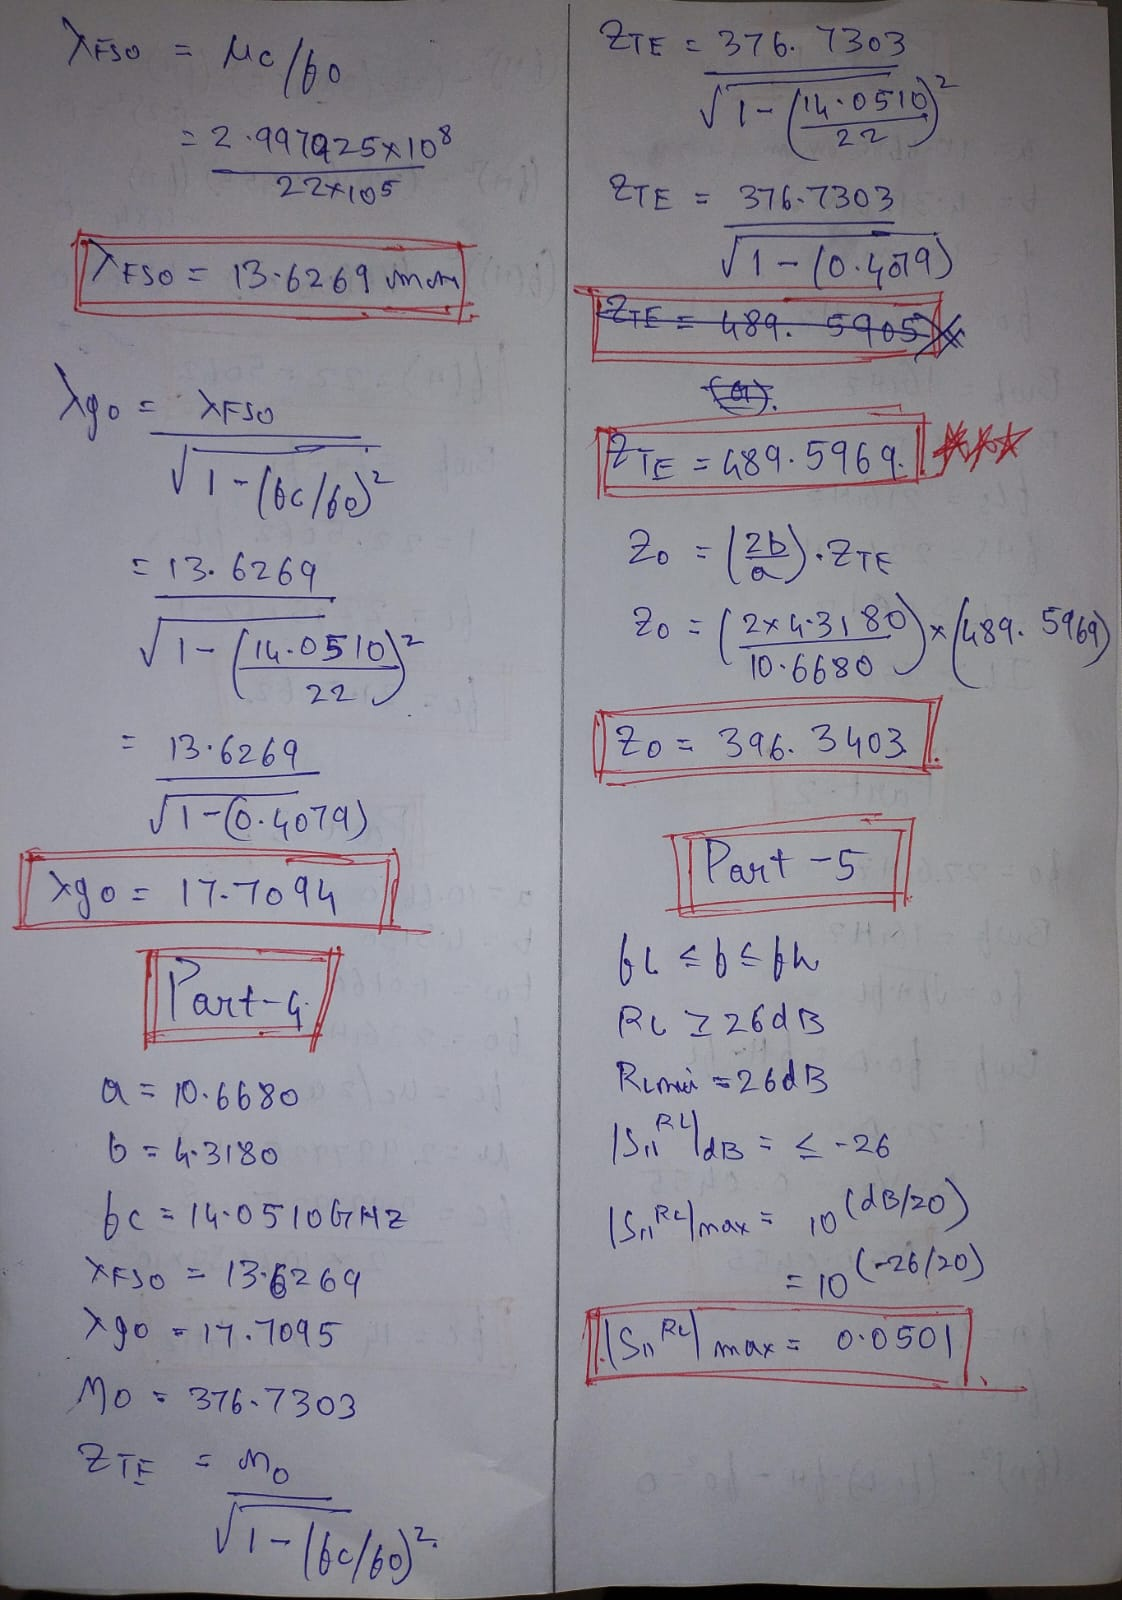 λFSO = μc/f0
= 2.997925×10⁸
22×10⁵
λFSO = 13.6269 mm
λg0 = λFSO
√1-(fc/f0)²
= 13.6269
√1-(14.0510)²
22
= 13.6269
√1-(0.4079)
λg0 = 17.7094
Part-4
a = 10.6680
b = 4.3180
fc = 14.0510GHZ
λFSO = 13.6269
λg0 = 17.7095
η0 = 376.7303
ZTE = η0
√1-(fc/f0)²
ZTE = 376.7303
√1-(14.0510)²
22
ZTE = 376.7303
√1-(0.4079)
ZTE = 489.5905
(or).
ZTE = 489.5969.
Z0 = (2b/a).ZTE
Z0 = (2×4.3180)×(489.5969)
10.6680
Z0 = 396.3403.
Part-5
fL ≤ f ≤ fh
RL ≥ 26dB
RLmin = 26dB
|S11^RL|dB = ≤ -26
|S11^RL|max = 10^(dB/20)
= 10^(-26/20)
|S11^RL|max = 0.0501